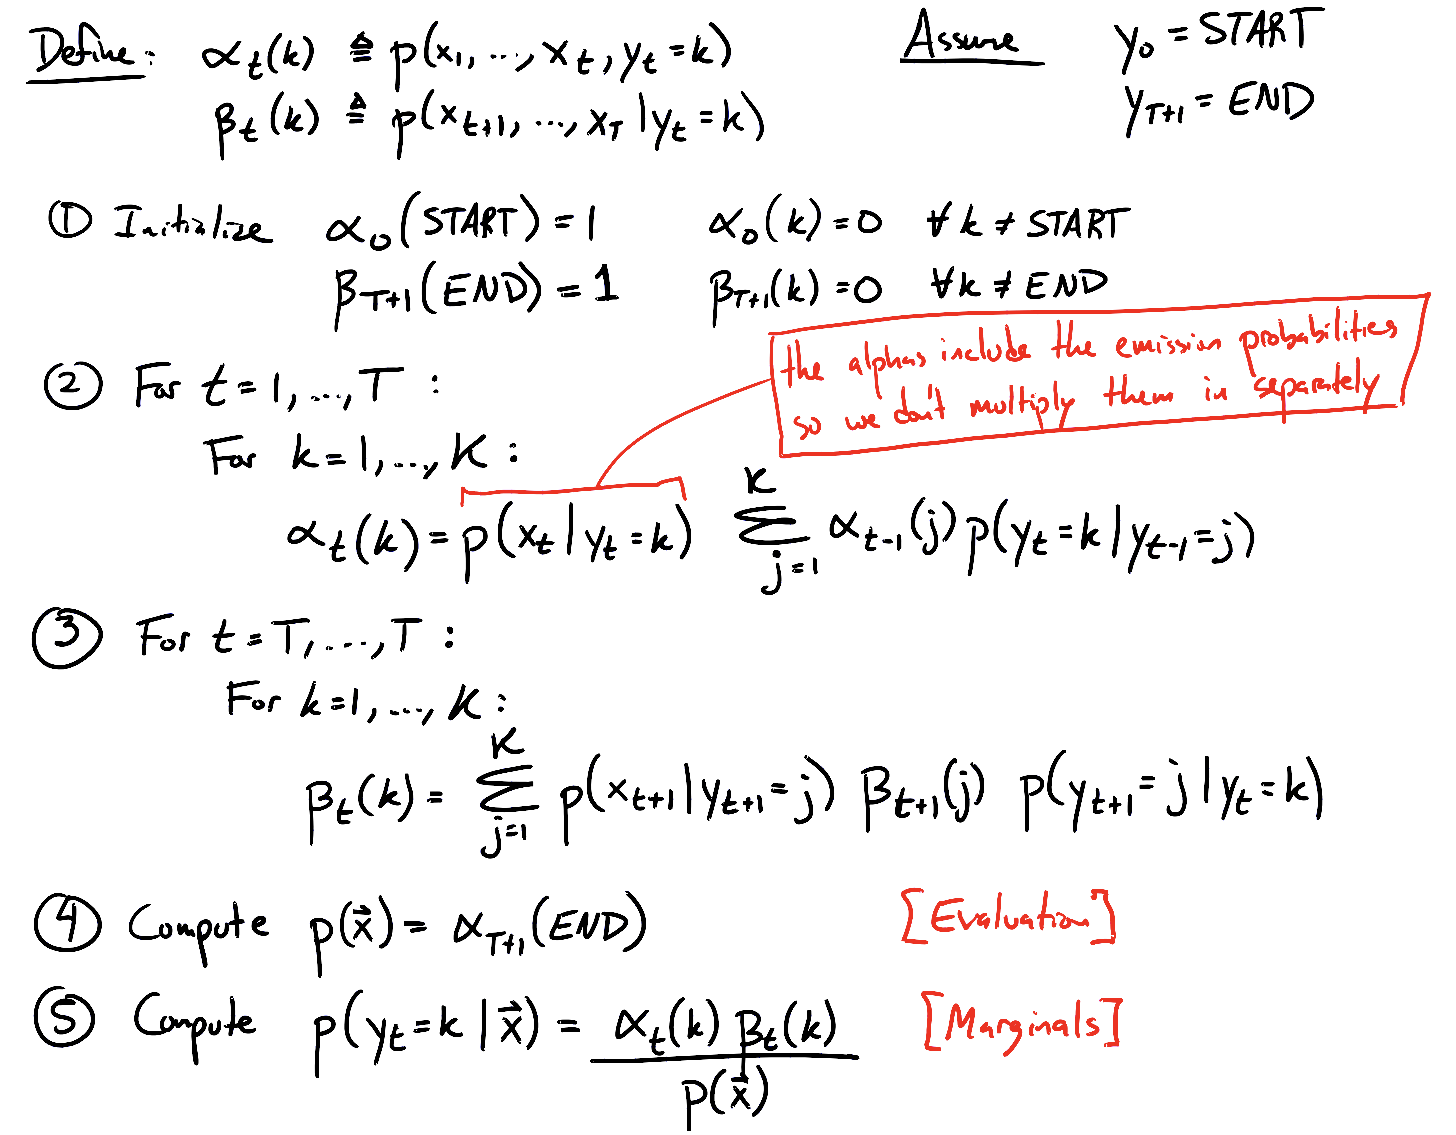 Define: α_t(k) ≜ p(x_1, ..., x_t, y_t = k)
β_t(k) ≜ p(x_{t+1}, ..., x_T | y_t = k)
Assume y_0 = START
y_{T+1} = END
① Initialize α_0(START) = 1 α_0(k) = 0 ∀ k ≠ START
β_{T+1}(END) = 1 β_{T+1}(k) = 0 ∀ k ≠ END
the alphas include the emission probabilities
so we don't multiply them in separately
② For t = 1, ..., T :
For k = 1, ..., K :
α_t(k) = p(x_t | y_t = k) ∑_{j=1}^{K} α_{t-1}(j) p(y_t = k | y_{t-1} = j)
③ For t = T, ..., T :
For k = 1, ..., K :
β_t(k) = ∑_{j=1}^{K} p(x_{t+1} | y_{t+1} = j) β_{t+1}(j) p(y_{t+1} = j | y_t = k)
④ Compute p(x⃗) = α_{T+1}(END) [Evaluation]
⑤ Compute p(y_t = k | x⃗) = α_t(k) β_t(k) / p(x⃗) [Marginals]